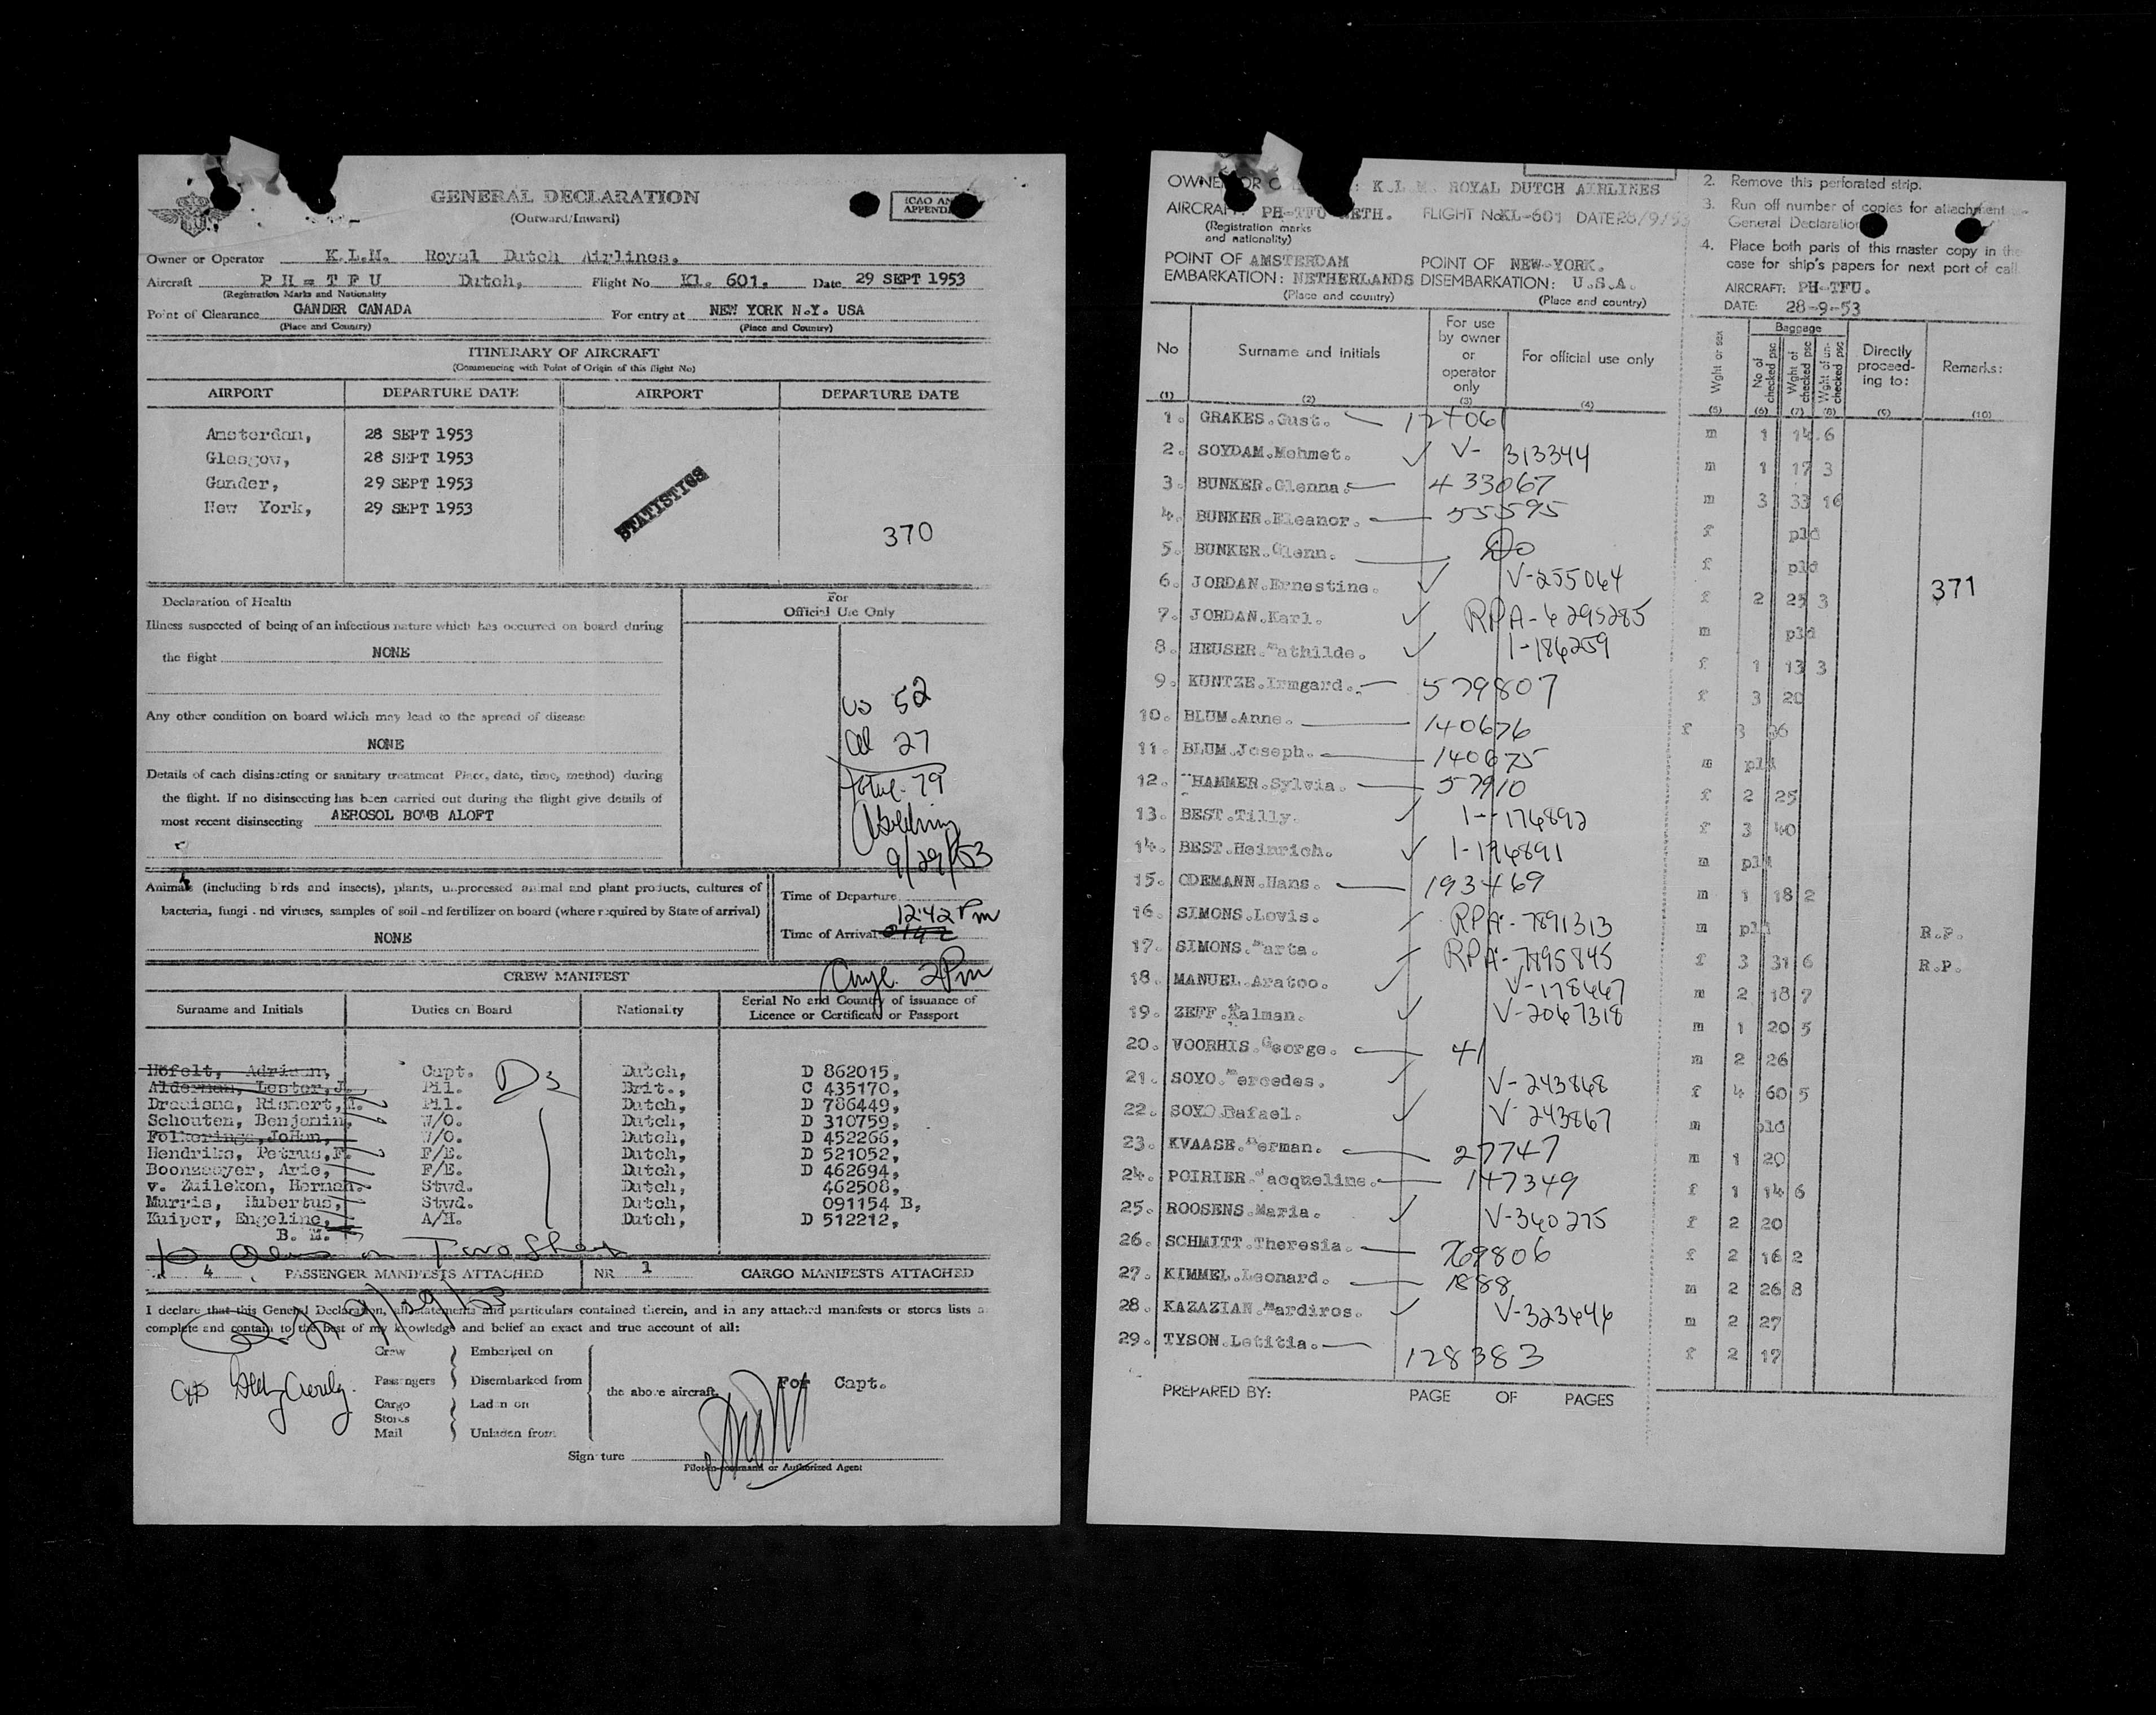 GENERAL DECLARATION
(Outward/Inward)
ICAO AN
APPENDI
Owner or Operator K.L.M. Royal Dutch Airlines.
Aircraft PH=TFU Dutch, Flight No. Kl. 601. Date 29 SEPT 1953
(Registration Marks and Nationality
Point of Clearance GANDER CANADA For entry at NEW YORK N.Y. USA
(Place and Country) (Place and Country)
ITINERARY OF AIRCRAFT
(Commencing with Point of Origin of this flight No)
AIRPORT DEPARTURE DATE AIRPORT DEPARTURE DATE
Amsterdam, 28 SEPT 1953
Glasgow, 28 SEPT 1953
Gander, 29 SEPT 1953
New York, 29 SEPT 1953
STATISTICS
370
Declaration of Health
For
Official Use Only
Illness suspected of being of an infectious nature which has occurred on board during
the flight NONE
Any other condition on board which may lead to the spread of disease
NONE
US 52
Al 27
Total 79
9/29/53
Details of each disinsecting or sanitary treatment Place, date, time, method) during
the flight. If no disinsecting has been carried out during the flight give details of
most recent disinsecting AEROSOL BOMB ALOFT
Animals (including birds and insects), plants, unprocessed animal and plant products, cultures of
bacteria, fungi and viruses, samples of soil and fertilizer on board (where required by State of arrival)
NONE
Time of Departure
12:42 Pm
Time of Arrival
2 Pm
CREW MANIFEST
Surname and Initials Duties on Board Nationality Serial No and Country of issuance of
Licence or Certificate or Passport
Höfelt, Adriaan, Capt. Dutch, D 862015,
Alderman, Lester,J. Pil. Brit., C 435170,
Draaisma, Rismert, Pil. Dutch, D 786449,
Schouten, Benjamin, W/O. Dutch, D 310759,
Folkeringa, Johan, W/O. Dutch, D 452266,
Hendriks, Petrus,F. F/E. Dutch, D 521052,
Boonzaayer, Arie, F/E. Dutch, D 462694,
v. Zuilekom, Herman. Stwd. Dutch, 462508,
Marris, Hubertus, Stwd. Dutch, 091154 B,
Kuiper, Engeline, A/H. Dutch, D 512212,
B. M.
4 PASSENGER MANIFESTS ATTACHED NR 1 CARGO MANIFESTS ATTACHED
I declare that this General Declaration, all statements and particulars contained therein, and in any attached manifests or stores lists a
complete and contain to the best of my knowledge and belief an exact and true account of all:
Crew Embarked on
Passengers Disembarked from the above aircraft For Capt.
Cargo Laden on
Stores
Mail Unladen from
Signature
Pilot-in-command or Authorized Agent
OWNER OR K.L.M. ROYAL DUTCH AIRLINES
AIRCRAFT: PH-TFU NETH. FLIGHT No KL-601 DATE 28/9/53
(Registration marks
and nationality)
POINT OF AMSTERDAM POINT OF NEW-YORK.
EMBARKATION: NETHERLANDS DISEMBARKATION: U.S.A.
(Place and country) (Place and country)
2. Remove this perforated strip.
3. Run off number of copies for attachment
General Declaration
4. Place both parts of this master copy in the
case for ship's papers for next port of call
AIRCRAFT: PH-TFU.
DATE: 28-9-53
No Surname and initials For use by owner or operator only For official use only Wght or sex Baggage No of checked psc Wght of checked psc Wght of un-checked psc Directly proceed-ing to: Remarks:
(1) (2) (3) (4) (5) (6) (7) (8) (9) (10)
1. GRAKES.Gust. 124061 m 1 14 6
2. SOYDAM.Mehmet. V- 313344 m 1 17 3
3. BUNKER.Glenna. 433067 m 3 33 16
4. BUNKER.Eleanor. 55595 f pld
5. BUNKER.Glenn. Do f pld
6. JORDAN.Ernestine. V-255064 f 2 25 3
371
7. JORDAN.Karl. RPA-6295285 m pld
8. HEUSER.Mathilde. I-186259 f 1 13 3
9. KUNTZE.Irmgard. 579807 f 3 20
10. BLUM.Anne. 140676 f 3 36
11. BLUM.Joseph. 140675 m pld
12. HAMMER.Sylvia. 57910 f 2 25
13. BEST.Tilly. I-176892 f 3 40
14. BEST.Heinrich. I-176891 m pld
15. ODEMANN.Hans. 193469 m 1 18 2
16. SIMONS.Lovis. RPA-7891313 m pld R.P.
17. SIMONS.Marta. RPA-7895845 f 3 31 6 R.P.
18. MANUEL.Aratoo. V-178647 m 2 18 7
19. ZEFF.Kalman. V-2067318 m 1 20 5
20. VOORHIS.George. 41 m 2 26
21. SOYO.Mercedes. V-243868 f 4 60 5
22. SOYO.Rafael. V-243867 m pld
23. KVAASE.Herman. 27747 m 1 20
24. POIRIER.Jacqueline. 147349 f 1 14 6
25. ROOSENS.Maria. V-360275 f 2 20
26. SCHMITT.Theresia. 769806 f 2 16 2
27. KIMMEL.Leonard. 1888 m 2 26 8
28. KAZAZIAN.Mardiros. V-323646 m 2 27
29. TYSON.Letitia. 128383 f 2 17
PREPARED BY: PAGE OF PAGES